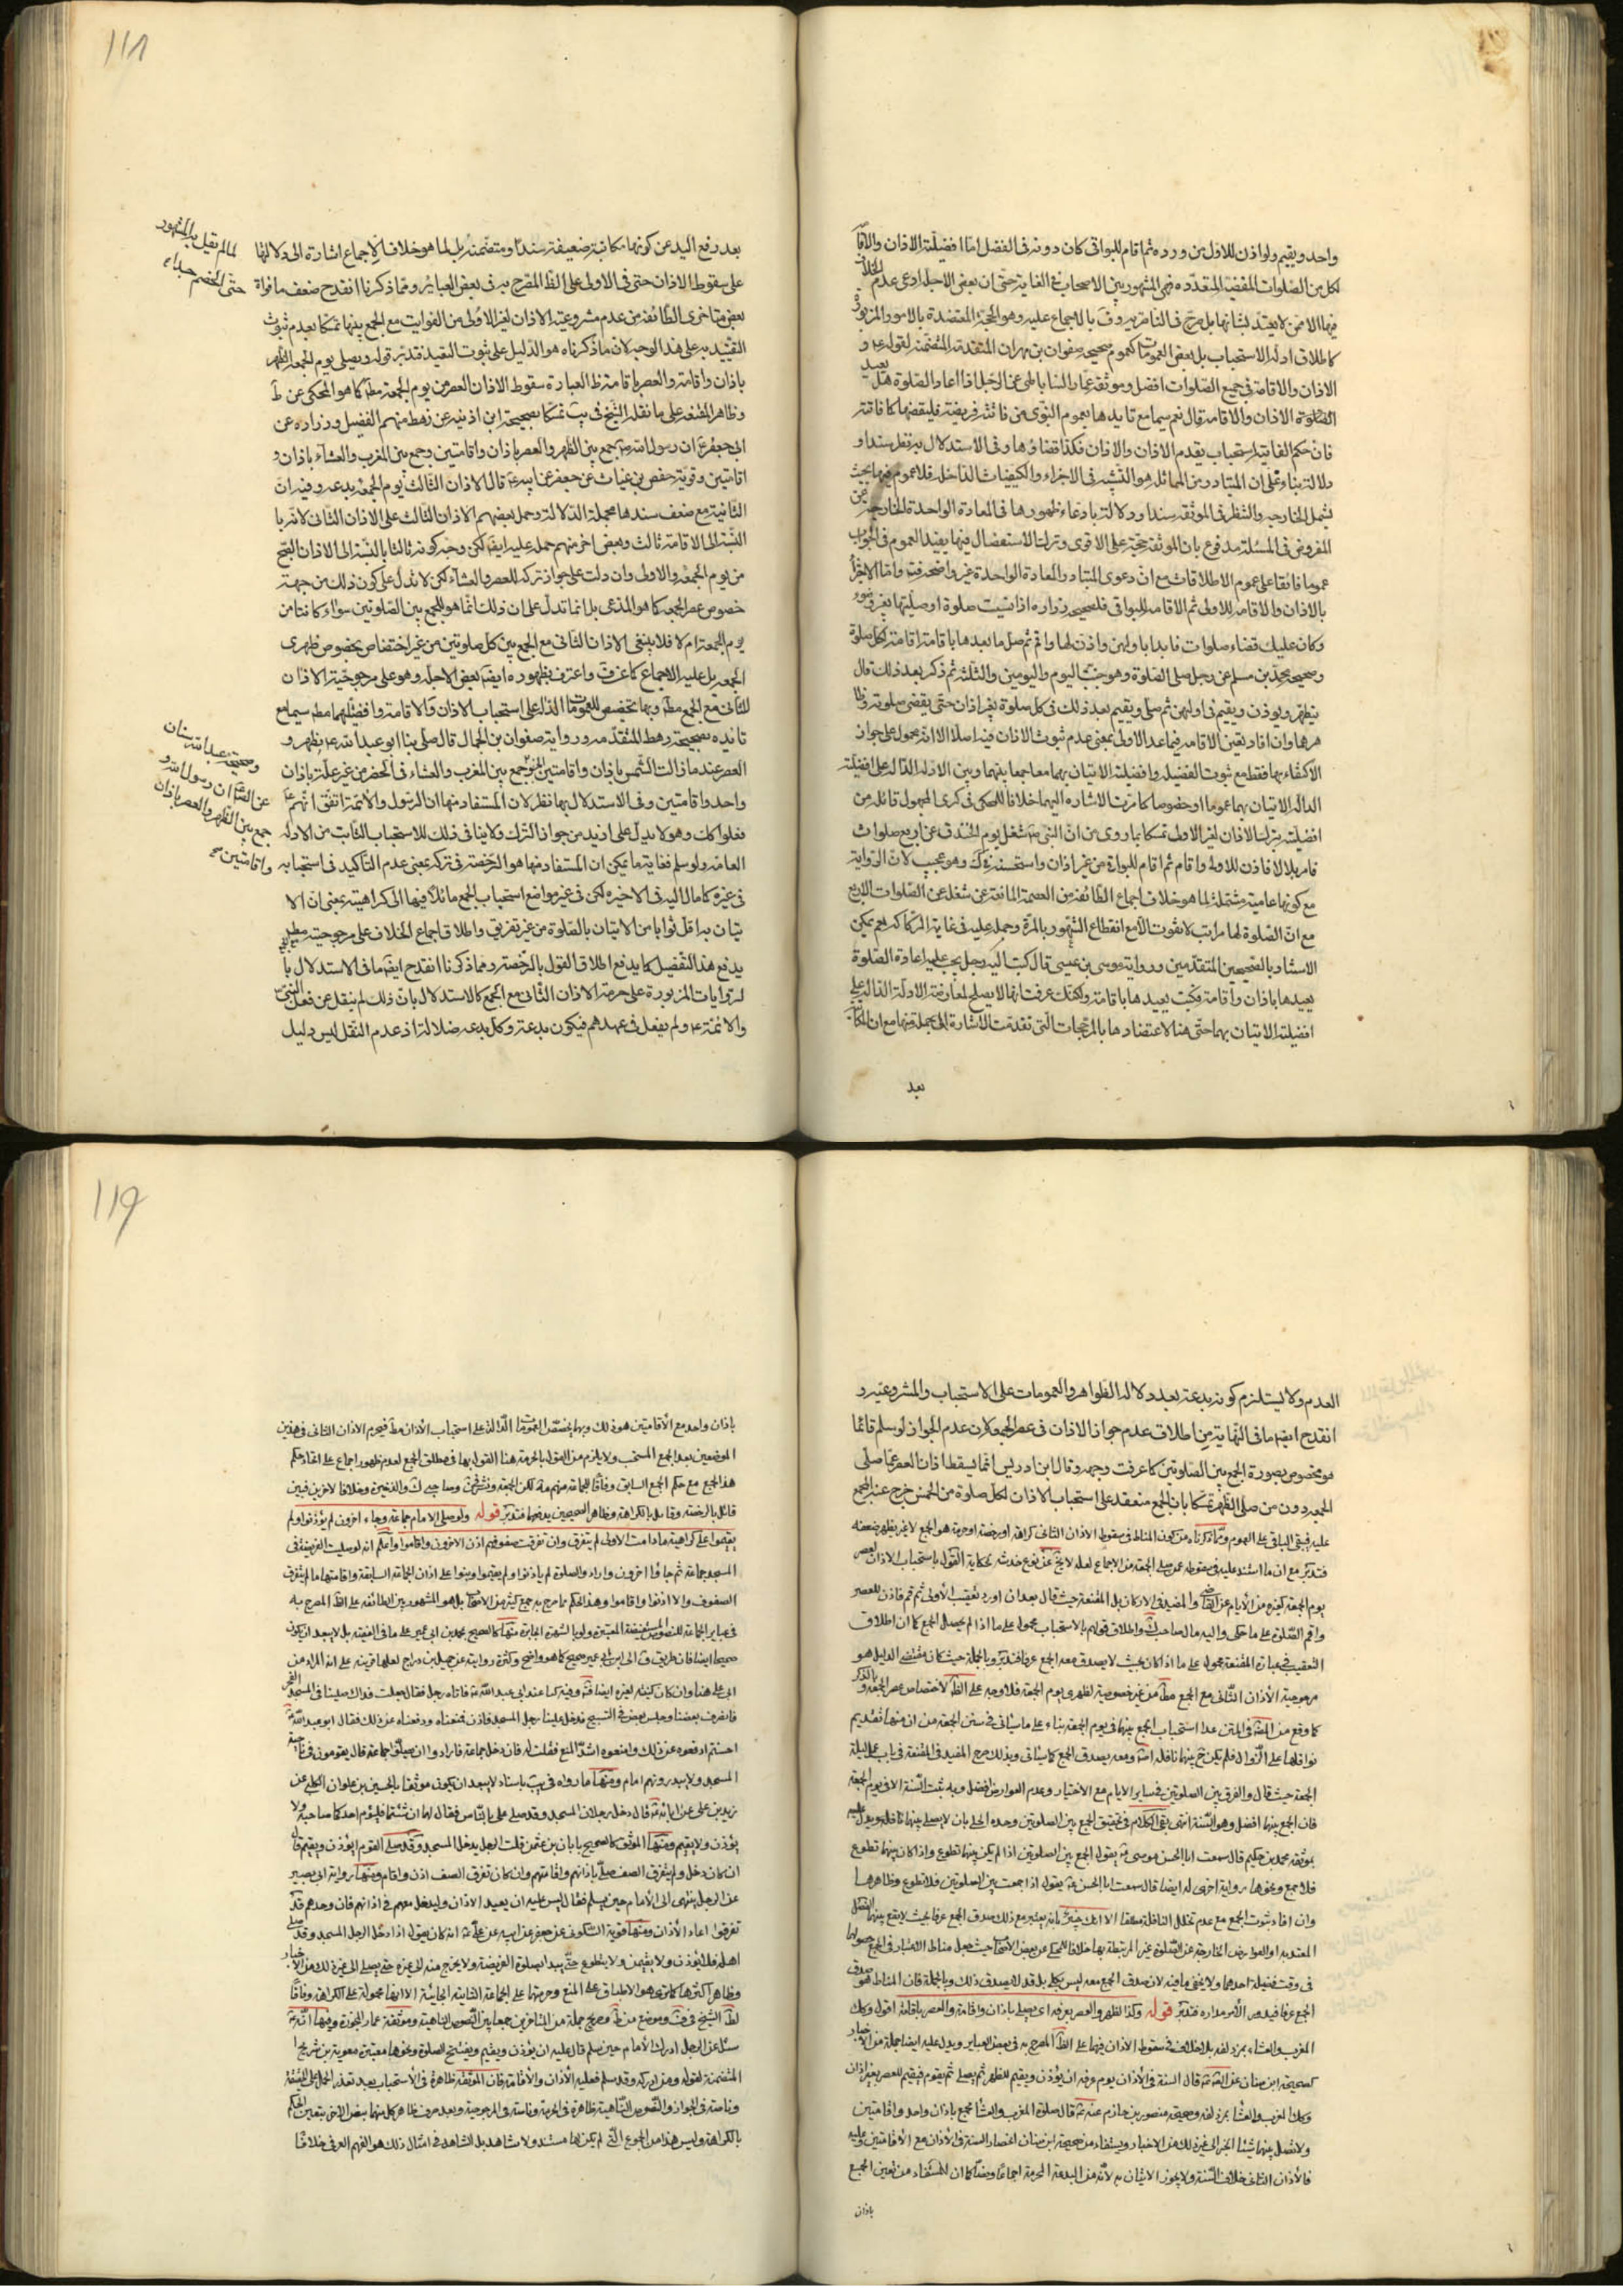 واحد ويقيم ولو اذن للاول من ورده ثم اقام للبواقى كان دونه فى الفضل امّا افضيلة الاذان والاقا
لكل من الصلوات المتعدده فهى المشهور بين الاصحاب غ الغاية حتى ان بعض الاجلة ادعى عدم الخلاف
فيها الا ممن لا يعتد بشانها بل صرّح فى الناصريه وفَ بالاجماع عليه وهو الحجة المعتضدة بالامور المزبوره
كاطلاق ادلة الاستحباب بل بعض العمومات كعموم صحيحه صفوان بن مهران المتقدمة المتضمنه لقوله ع و
الاذان والاقامة فى جميع الصلوات افضل وموثقه عمار الساباطى عن الرجل اذا اعاد الصلوة هل يعيد
الاذان والاقامه قال نعم سيما مع تايدها بعموم النبوى من فاتته فريضة فليقضها كما فاتته
فان حكم الفايته استحباب تقدم الاذان والاذان فكذا قضاؤها وفى الاستدلال به نظر سندا و
دلالة بناء على ان المتبادر من المماثل هو التشبه فى الاجزاء والكيفيات الداخله فلا عموم فيها بحيث
يشمل الخارجيه والنظر فى الموثقه سندا ودلالة بادعاء ظهورها فى المعادة الواحدة الخارجه عن
المفروض فى المسئلة مدفوع بان الموثقه حجة على الاقوى وترك الاستفصال فيها يفيد العموم فى الجواب
عموما فائقا على عموم الاطلاقات مع ان دعوى المتبادر والعادة الواحدة غير واضحه فت واما الاجتزا
بالاذان والاقامه للاولى ثم الاقامه للبواقى فلصحيحه زراره اذا نسيت صلوة او صليتها بغير وضوء
وكان عليك قضاء صلوات فابدا باولهن واذن لها واقم ثم صل ما بعدها باقامة اقامة لكل صلوة
وصحيحه محمد بن مسلم عن رجل صلى الصلوة وهو جنب اليوم واليومين والثلثه ثم ذكر بعد ذلك قال
يتطهر ويوذن ويقيم فى اولهن ثم صلى ويقيم بعد ذلك فى كل صلوة بغير اذان حتى يقضى صلوته وظا
هرهما وان افاد تعين الاقامه فيما عد الاولى بمعنى عدم ثبوت الاذان فيه اصلا الا انه محمول على جواز
الاكتفاء بها فقط مع ثبوت الفضيله وافضلية الاتيان بهما معا جمعا بينهما وبين الادله الداله على افضلية
الداله الاتيان بهما عموما او خصوصا كما مرت الاشاره اليهما خلافا للمحكى فى كرى المجهول قائله من
افضليته بترك الاذان لغير الاولى تمسكا بما روى من ان النبى ص شغل يوم الخندق عن اربع صلوات
فامر بلالا فاذن للاولى واقام ثم اقام للبواقى من غير اذان واستحسنه فى ك وهو عجيب لان الرواية
مع كونها عامية مشتملة لما هو خلاف اجماع الطائفه من العصمة المانعة عن شغله عن الصلوات الاربع
مع ان الصلوة لها مراتب لا تفوت الا مع انقطاع الشهور بالمرة وحمله عليه فى غاية الركاكه نعم يمكن
الاستناد بالصحيحين المتقدمين ورواية موسى بن عيسى قال كتبت اليه رجل يجب عليه اعادة الصلوة
يعيدها باذان واقامة فكتب يعيدها باقامة ولكنك عرفت انها لا يصلح لمعارضة الادلة الداله على
افضليه الاتيان بهما حتى هنا لاعتضادها بالمرجحات التى تقدمت الاشارة الى جملة منها مع ان المكا
بعد
111
بعد رفع اليد عن كونها مكاتبة ضعيفة سندا ومتضمنه بل لما هو خلاف الاجماع اشارة الى دلالتها
لما لم يقل به المشهور
حتى الخصم جداء
على سقوط الاذان حتى فى الاولى على الظا المصرح به فى بعض العبائر ومما ذكرنا انقدح ضعف ما قواة
بعض متاخرى الطائفه من عدم مشروعية الاذان لغير الاولى من الفوايت مع الجمع بينها تمسكا بعدم ثبوت
التقييد به على هذا الوجه لان ما ذكرناه هو الدليل على ثبوت التقييد فتدبر قوله ويصلى يوم الجمعه الظهر
باذان واقامة والعصر باقامة ظ العبارة سقوط الاذان العصر من يوم الجمعة مط كما هو المحكى عن ط
وظاهر المقنعه على ما نقله الشيخ فى يب تمسكا بصحيحة ابن اذينه عن رهط منهم الفضيل وزراره عن
ابى جعفر ع ان رسول الله ص جمع بين الظهر والعصر باذان واقامتين وجمع بين المغرب والعشاء باذان و
اقامتين وقوية حفص بن غياث عن جعفر عن ابيه ع قال الاذان الثالث يوم الجمعة بدعه وفيه ان
الثانية مع ضعف سندها مجملة الدلالة وحمل بعضهم الاذان الثالث على الاذان الثانى لانه با
النسبة الى الاقامة ثالث وبعض اخر منهم حمله عليه ايضا لكن وجه كونه ثالثا بالنسبة الى الاذان الصبح
من يوم الجمعة والاولى وان دلت على جواز تركه للعصر والعشاء لكن لا تدل على كون ذلك من جهة
خصوص عصر الجمعه كما هو المدعى بل انما تدل على ان ذلك انما هو للجمع بين الصلوتين سواء كانتا من
يوم الجمعة ام لا فلا ينبغى الاذان الثانى مع الجمع بين كل صلوتين من غير اختصاص بخصوص ظهرى
الجمعه بل عليه الاجماع كما عن فَ واعترف بظهوره ايضا بعض الاجله وهو على مرجوحية الاذان
للثانى مع الجمع مط وبهما تخصيص للعمومات الداله على استحباب الاذان والاقامة وافضيلتهما مط سيما مع
تايده بصحيحة رهط المتقدمه ورواية صفوان بن الجمال قال صلى بنا ابو عبد الله ع بظهر و
العصر عند ما زالت الشمس باذان واقامتين جمع بين المغرب والعشاء فى الحضر من غير علة باذان
وصحيحة عبد الله بن سنان
عن الص ان رسول الله و
جمع بين الظهر والعصر باذان
واقامتين صح
واحد واقامتين وفى الاستدلال بهما نظر لان المستفاد منها ان الرسول والائمة اتفق انهم ع
فعلوا كك وهو لا يدل على ازيد من جواز الترك ولا ينافى ذلك للاستحباب الثابت من الادله
العامه ولو سلم فغاية ما يمكن ان المستفاد منها هو الرخصة فى تركه بمعنى عدم التاكيد فى استحبابه
فى غيره كما مال اليه فى الاخيره لكن فى غير مواضع استحباب الجمع مائلا فيها الى كراهيته بمعنى ان الا
تيان به اقل ثوابا من الاتيان بالصلوة من غير تفريق واطلاق اجماع الخلاف على مرجوحيته
يدفع هذا التفصيل كما يدفع اطلاق القول بالرخصة ومما ذكرنا انقدح ايضا ما فى الاستدلال با
لروايات المزبورة على حرمة الاذان الثانى مع الجمع كالاستدلال بان ذلك لم ينقل عن فعل النبى
والائمة ع ولم يفعل فى عهدهم فيكون بدعة وكل بدعه ضلالة اذ عدم النقل ليس دليل
العدم ولا يستلزم كونه بدعة بعد دلالة الظواهر والعمومات على الاستحباب والمشروعية و
انقدح ايضا ما فى النهاية من اطلاق عدم جواز الاذان فى عصر الجمعه لان عدم الجواز لو سلم فانما
هو مخصوص بصورة الجمع بين الصلوتين كما عرفت وجهه وقال ابن ادريس انما يسقط اذان العصر عمن صلى
الجمعه دون من صلى الظهر تمسكا بان الجمع منعقد على استحباب الاذان لكل صلوة من الخمس خرج عنه الجمع
عليه فيبقى الباقى على العموم ومما ذكرناه من كون المناط فى سقوط الاذان الثانى كراهة او رخصة او حرمة هو الجمع لا غير يظهر ضعفه
فتدبر مع ان ما استند عليه فى سقوطه عمن صلى الجمعه من الاجماع لعله لا يخ عن نوع خدشه لحكاية القول باستحباب الاذان لعصر
يوم الجمعه كغيره من الأيام عن القاضى والمفيد فى الاركان بل المقنعة حيث قال بعد ان اورد تعقيب الأولى ثم قم فاذن للعصر
واقم الصلوة على ما حكى واليه مال صاحب ك واطلاق قولهم بالاستحباب محمول على ما اذا لم يحصل الجمع كما ان اطلاق
التعقيب فى عبارة المقنعة محمول على ما اذا كان بحيث لا يصدق معه الجمع عرفا فتدبر وبالجملة حيث كان مقتضى الدليل هو
مرجوحية الأذان الثانى مع الجمع مط من غير خصوصية لظهرى يوم الجمعة فلا وجه على الظ لاختصاص عصر الجمعه بالذكر
كما وقع من المص فى المتن عدا استحباب الجمع بينها فى يوم الجمعة بناء على ما سياتى فى سنن الجمعه من ان منها تقديم
نوافلها على الزوال فلم يكن ح بينها نافلة اصلا ومعه يصدق الجمع كما سياتى وبذلك صرح المفيد فى المقنعة فى باب عمل ليلة
الجمعة حيث قال والفرق بين الصلوتين فى ساير الايام مع الاختيار وعدم العوارض افضل وبه ثبت السنة الا فى يوم الجمعة
فان الجمع بينها افضل وهو السنة انتهى بقى الكلام فى تحقيق الجمع بين الصلوتين وحده الحلى بان لا يصلى بينها نافله ويدل عليه
موثقه محمد بن حكيم قال سمعت ابا الحسن موسى ع يقول الجمع بين الصلوتين اذا لم يكن بينها تطوع واذا كان بينها تطوع
فلا جمع ونحوها رواية اخرى له ايضا قال سمعت ابا الحسن ع يقول اذا جمعت بين الصلوتين فلا تطوع وظاهرهما
وان افاد ثبوت الجمع مع عدم تخلل النافلة مطلقا الا انك خبير بانه يعتبر مع ذلك صدق الجمع عرفا بحيث لا يقع بينهما الفصل
المعتد به او العوارض الخارجة عن الصلوة غير المرتبطة بها خلافا للمحكى عن بعض الاصحاب حيث جعل مناط الاعتبار فى الجمع حصولها
فى وقت فضيلة احدهما ولا يخفى ما فيه لان صدق الجمع معه ليس بكلى بل قد لا يصدق ذلك وبالجملة فان المناط هو صدق
الجمع عرفا فيدور الأمر مداره فتدبر قوله وكذا الظهر والعصر بعرفه اى يصلى باذان واقامة والعصر باقامة اقول وكك
المغرب والعشاء بمزدلفه بلا خلاف فى سقوط الاذان فيها على الظ المصرح به فى بعض العباير ويدل عليه ايضا جملة من الاخبار
كصحيحة ابن سنان عن الص ع قال السنة فى الأذان يوم عرفه ان يؤذن ويقيم للظهر ثم يصلى ثم يقوم فيقيم للعصر بغير اذان
وكك المغرب والعشا بمزدلفه وصحيحة منصور بن حازم عنه ع قال صلوة المغرب والعشا بجمع باذان واحد واقامتين
ولا تصل بينهما شيئا الخبر الى غير ذلك من الاخبار ويستفاد من صحيحة ابن سنان انحصار السنة فى الأذان مع الأقامتين وعليه
فالأذان الثانى خلاف السنة ولا يجوز الاتيان به لأنه من البدعة المحرمة اجماعا ونصا كما ان المستفاد من تعين الجمع
باذان
119
باذان واحد مع الأقامتين هو ذلك وبهما يخصص العمومات الدالة على استحباب الأذان مط فيحرم الاذان الثانى فى هذين
الموضعين بعد الجمع المستحب ولا يلزم من القول بالحرمة هنا القول بها فى مطلق الجمع لعدم ظهور اجماع على اتحاد حكم
هذا الجمع مع حكم الجمع السابق وفاقا لجماعة منهم وصاحبى ك والذخيرة وخلافا لاخرين فبين
قائل بالرخصة وقايل بالكراهة وظاهر الصحيحين يدفعهما فتدبر قوله ولو صلى الامام جماعة وجاء اخرون لم يؤذنوا ولم
يقيموا على كراهية ما دامت الاولى لم يتفرق وان تفرقت صفوفهم اذن الاخرون واقاموا واعلم انه لو صليت الفريضة فى
المسجد جماعة ثم جاؤا اخرون وارادوا الصلوة لم ياذنوا ولم يقيموا وبنوا على اذان الجماعة السابقة واقامتها ما لم يتفرق
الصفوف والا اذنوا واقاموا وهذا الحكم مما صرح به جمع كثير من الاصحاب بل هو المشهور بين الطائفه على الظ المصرح به
فى عباير الجماعة للنصوص المستفيضة المعتبرة ولو بالشهرة الجابرة منها كالصحيح بمحمد بن ابى عمير على ما فى الفقيه بل لا يبعد ان يكون
صحيحا ايضا فان طريق ق الى ابن ابى عمير صحيح كما هو واضح وكثرة روايته عن جميل بن دراج لعلها قرينة على انه المراد من
ابى على هنا وان كان كنية لغيره ايضا وفيه كنا عند ابى عبد الله ع فاتاه رجل فقال جعلت فداك صلينا فى المسجد الفجر
فانصرف بعضنا وجلس بعض فى التسبيح فدخل علينا رجل المسجد فاذن فمنعناه ودفعناه عن ذلك فقال ابو عبد الله ع
احسنتم ادفعوه عن ذلك وامنعوه اشد المنع فقلت له فان دخل جماعة فارادوا ان يصلوا جماعة قال يقومون فى ناحية
المسجد ولا يبدر بهم امام ومنها ما رواه فى يب باسناد لا يبعد ان يكون موثقا بالحسين بن علوان الكلبى عن
زيد بن على عن ابائه ع قال دخل رجلان المسجد وقد صلى على بالناس فقال لهما ان شئتما فليؤم احدكما صاحبه ولا
يؤذن ولا يقيم ومنها الموثق كالصحيح بابان بن عثمن قلت الرجل يدخل المسجد وقد صلى القوم ايؤذن ويقيم قال
ان كان دخل ولم يتفرق الصف صلى باذانهم واقامتهم وان كان تفرق الصف اذن واقام ومنها رواية ابى بصير
عن الرجل ينتهى الى الأمام حين يسلم فقال ليس عليه ان يعيد الأذان وليدخل معهم فى اذانهم فان وجدهم قد
تفرقوا اعاد الأذان ومنها قوية السكونى عن جعفر عن ابيه عن على ع انه كان يقول اذا دخل الرجل المسجد وقد صلى
اهله فلا يؤذن ولا يقيمن ولا يتطوع حتى يبدا بصلوة الفريضة ولا يخرج منه الى غيره حتى يصلى الى غير ذلك من الاخبار
وظاهر اكثرها كما ترى هو الاطباق على المنع وحرمتها على الجماعة الثانية الجائية الا انها محمولة على الكراهة وفاقا
لظ الشيخ فى وموضع من ط وصريح جملة من المتاخرين جمعا بين النصوص الناهية وموثقة عمار المجوزة وفيها انه ع
سئل عن الرجل ادرك الأمام حين سلم قال عليه ان يؤذن ويقيم ويفتتح الصلوة ونحوها معتبرة معوية بن شريح ا
المتضمنه لقوله ومن ادركه وقد سلم فعليه الأذان والأقامة فان الموثقة ظاهرة فى الأستحباب بعد تعذر الحمل على الحقيقة
وناصة فى الجواز والنصوص الناهية ظاهرة فى الحرمة وناصة فى المرجوحية وبعد صرف ظاهر كل منهما بنص الاخر يتعين الحكم
بالكراهة وليس هذا من الجموع التى لم يكن لها مستند ولا شاهد بل الشاهد فى امثال ذلك هو الفهم العرفى خلافا